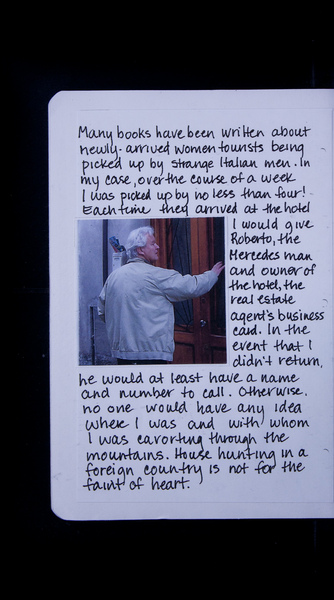 Many books have been written about
newly-arrived women tourists being
picked up by strange Italian men. In
my case, over the course of a week
I was picked up by no less than four!
Each time they arrived at the hotel
I would give
Roberto, the
Mercedes man
and owner of
the hotel, the
real estate
agent's business
card. In the
event that I
didn't return,
he would at least have a name
and number to call. Otherwise,
no one would have any idea
where I was and with whom
I was cavorting through the
mountains. House hunting in a
foreign country is not for the
faint of heart.